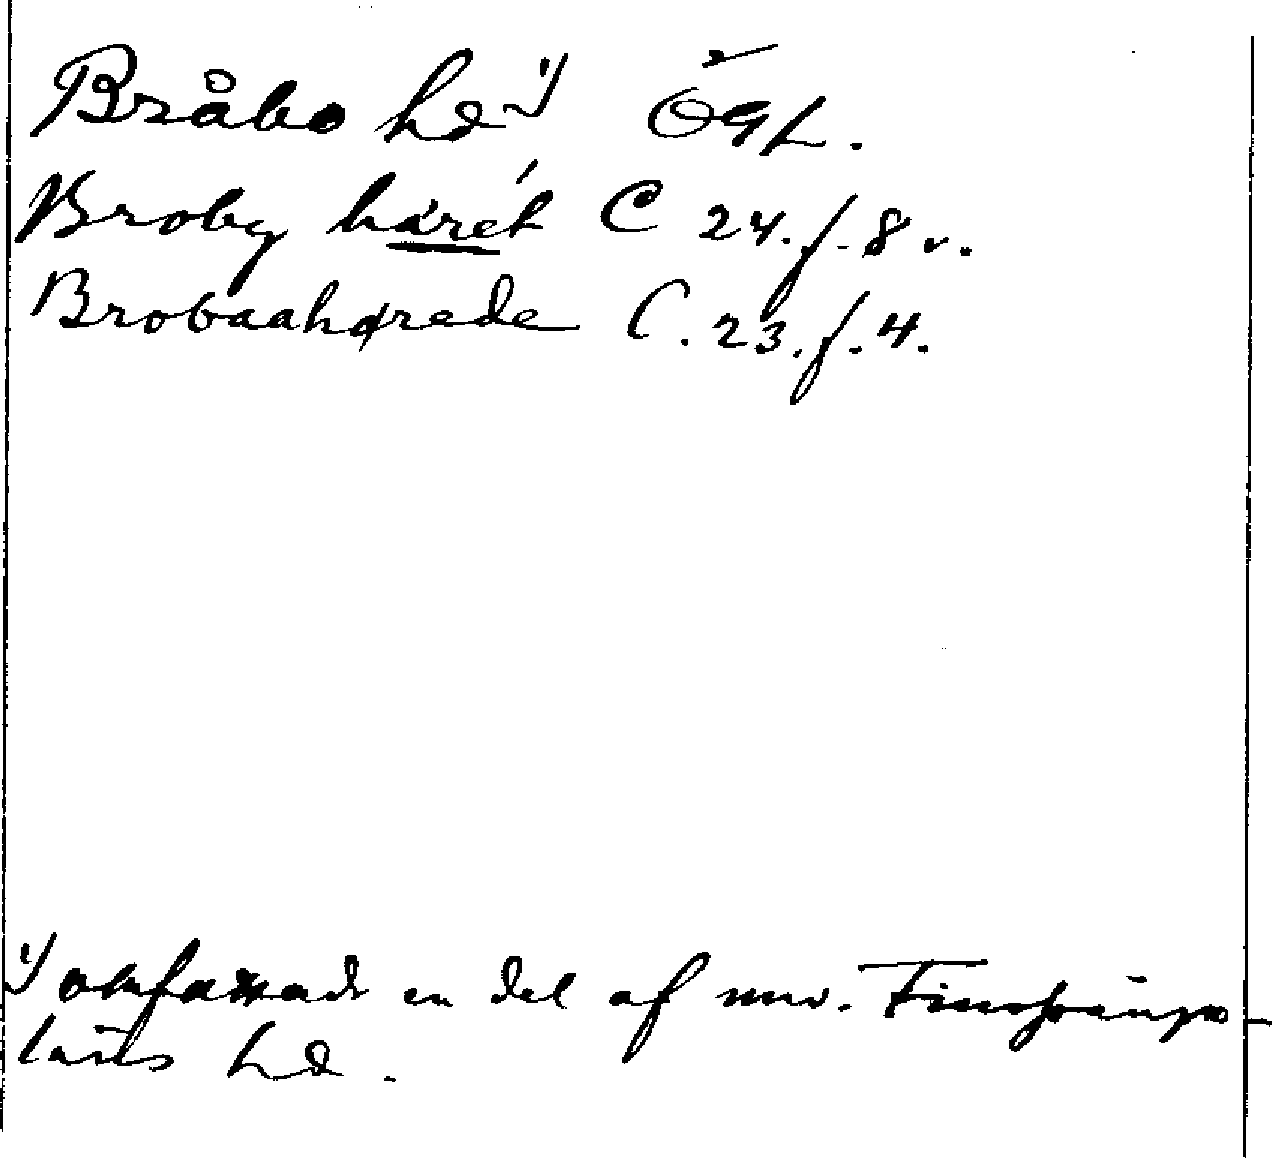 Bråbo hd 1) Ögl.
Broby häret C 24. f. 8 v.
Brobaahærede C. 23. f. 4.
1) omfattade en del af nuv. Finspånga
läns hd.